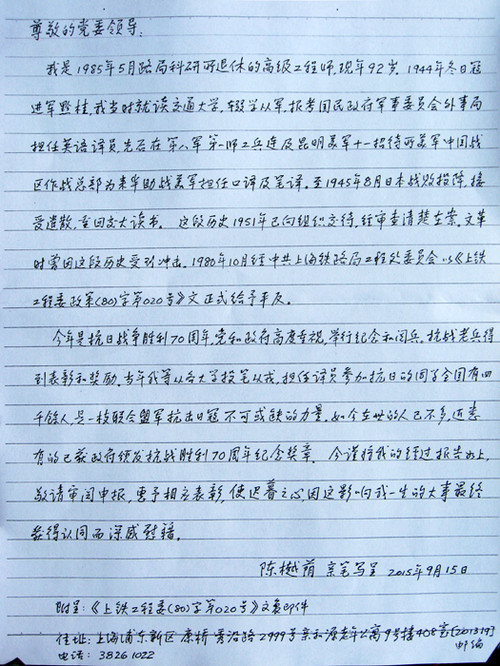 尊敬的党委领导:
我是1985年5月路局科研所退休的高级工程师,现年92岁.1944年冬日寇
进军黔桂,我当时就读交通大学,辍学从军,报考国民政府军事委员会外事局
担任英语译员,先后在第八军第一师工兵连及昆明美军十一招待所美军中国战
区作战总部为来华助战美军担任口译及笔译.至1945年8月日本战败投降,接
受遣散,重回交大读书.这段历史1951年已向组织交待,经审查清楚在案.文革
时曾因这段历史受到冲击.1980年10月经中共上海铁路局工程处委员会以《上铁
工程委政策(80)字第020号》文正式给予平反。
今年是抗日战争胜利70周年,党和政府高度重视,举行纪念和阅兵.抗战老兵得
到表彰和奖励.当年我等从各大学投笔从戎,担任译员参加抗日的同学全国有四
千馀人,是一枝联合盟军抗击日寇不可或缺的力量.如今在世的人已不多,近悉
有的已获政府颁发抗战胜利70周年纪念奖章.今谨将我的经过报告如上,
敬请审阅申报,惠予相应表彰,使迟暮之心,因这影响我一生的大事最终
获得认同而深感慰藉。
陈樾荫 亲笔写呈 2015年9月15日
附呈:《上铁工程委(80)字第020号》文复印件
住址:上海浦东新区康桥秀沿路2999号亲和源老年公寓9号楼408室[201319]
邮编
电话:38261022